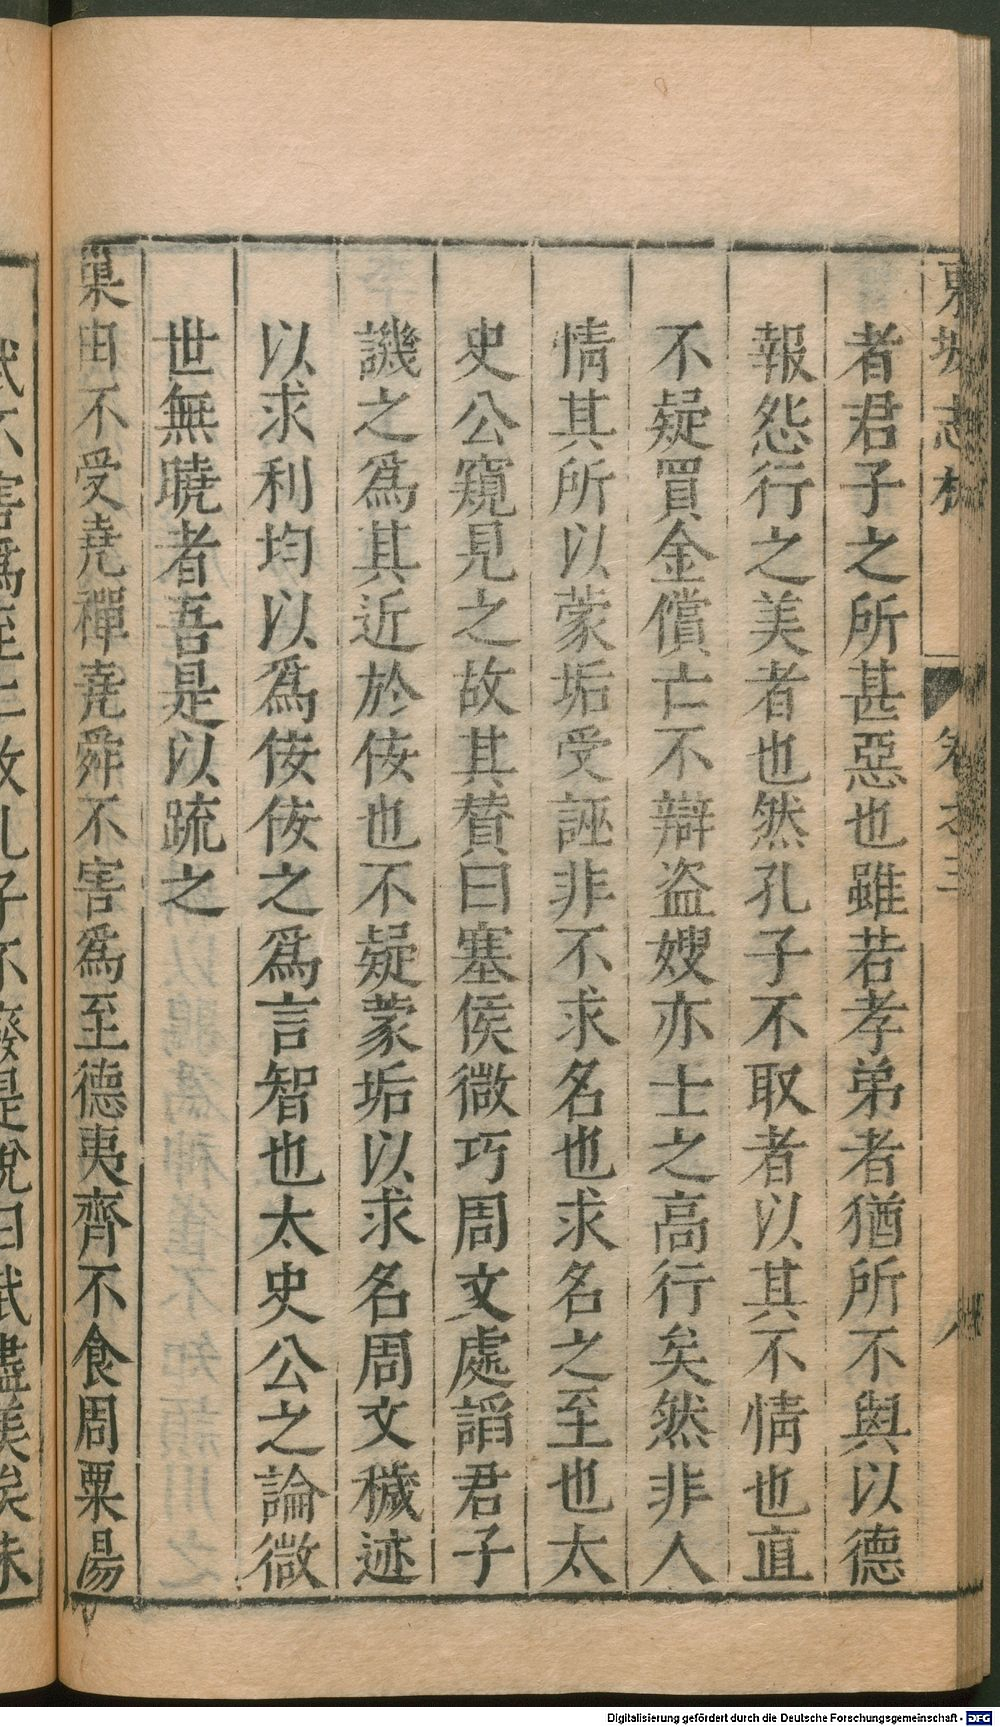 東坡志林 卷之三 八
者君子之所甚惡也雖若孝弟者猶所不與以德
報怨行之美者也然孔子不取者以其不情也直
不疑買金償亡不辯盗嫂亦士之高行矣然非人
情其所以蒙垢受誣非不求名也求名之至也太
史公窺見之故其贊曰塞侯微巧周文處謟君子
譏之爲其近於佞也不疑蒙垢以求名周文穢迹
以求利均以爲佞佞之爲言智也太史公之論微
世無曉者吾是以疏之
巢由不受堯禪堯舜不害爲至德夷齊不食周粟湯
武不害爲至仁故孔子不廢是說曰武盡美矣未
Digitalisierung gefördert durch die Deutsche Forschungsgemeinschaft - DFG